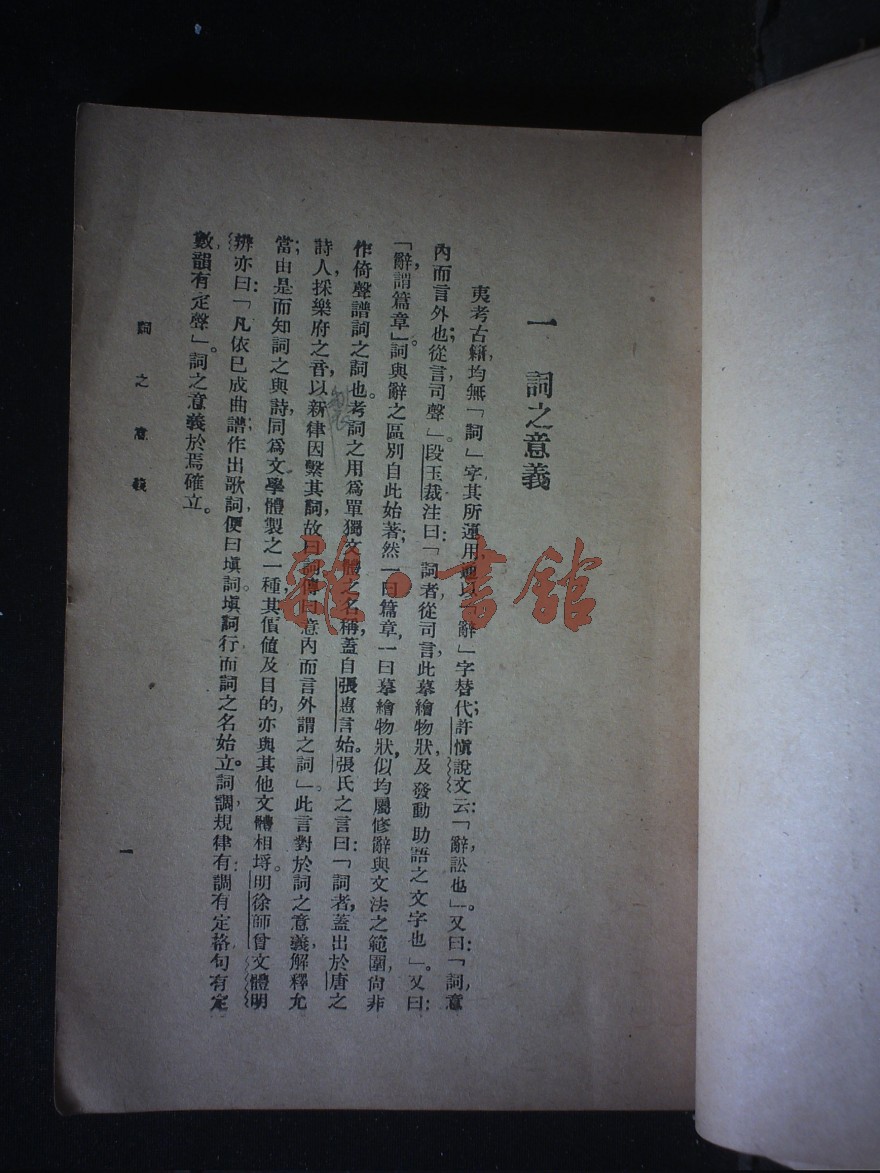 一 詞之意義
夷考古籍,均無「詞」字其所運用,通以「辭」字替代;許愼說文云:「辭,訟也」。又曰:「詞,意
內而言外也;從言司聲」。段玉裁注曰:「詞者從司言,此摹繪物狀,及發動助語之文字也」。又曰:
「辭謂篇章」。詞與辭之區別自此始著;然一曰篇章,一曰摹繪物狀,似均屬修辭與文法之範圍,尙非
作倚聲譜詞之詞也。考詞之用爲單獨文體之名稱,蓋自張惠言始。張氏之言曰:「詞者,蓋出於唐之
詩人,採樂府之音,以新律因繫其詞,故曰詞,傳曰意內而言外謂之詞」。此言對於詞之意義,解釋允
當;由是而知詞之與詩,同爲文學體製之一種,其價値及目的,亦與其他文體相埒。明徐師曾文體明
辨亦曰:「凡依已成曲譜作出歌詞,便曰塡詞。塡詞行而詞之名始立。詞調規律有:調有定格,句有定
數,韻有定聲」。詞之意義於焉確立。
詞之意義
一
雜·書館